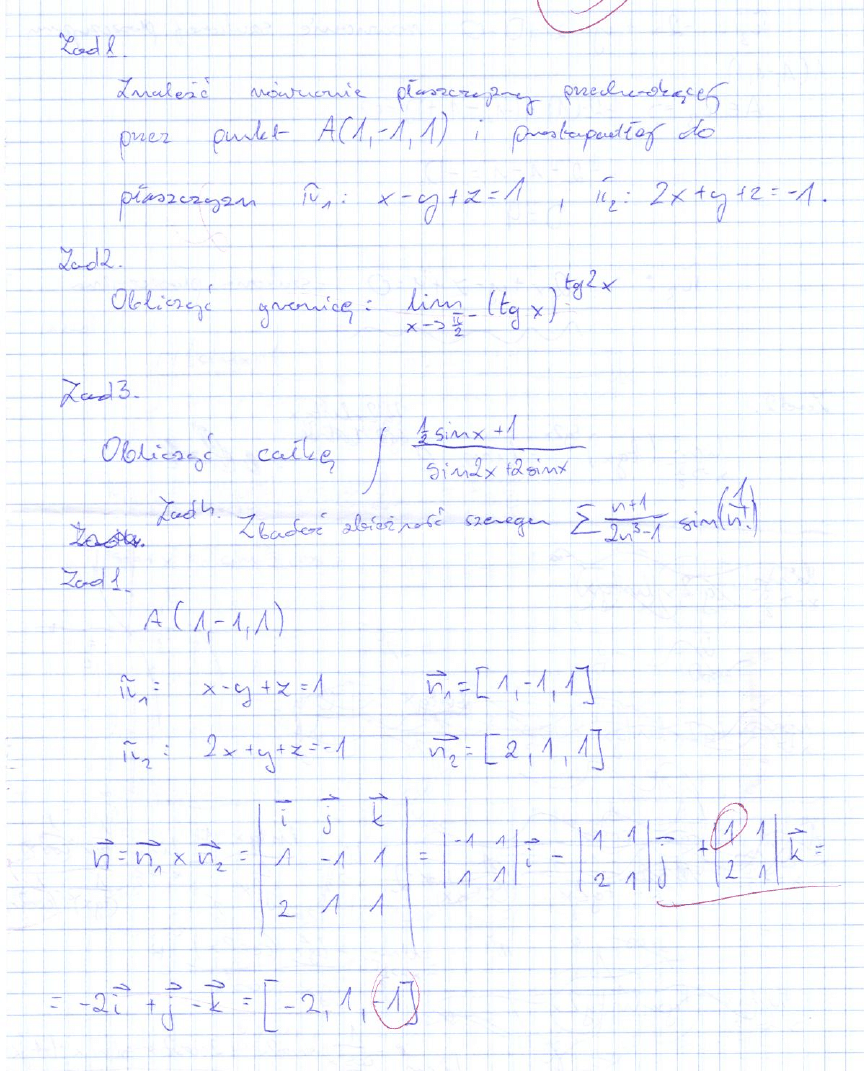 Zad1.
Znaleść równanie płaszczyzny przechodzącej
przez punkt A(1,-1,1) i prostopadłej do
płaszczyzn π₁: x-y+z=1 , π₂: 2x+y+z=-1.
Zad2.
Obliczyć granicę: lim x→π/2⁻ (tg x)^tg2x
Zad3.
Obliczyć całkę ∫ (½ sinx +1)/(sin2x+2sinx)
Zad4. Zbadać zbieżność szeregu Σ (n+1)/(2n³-1) sin(1/n!)
Zad1.
A(1,-1,1)
π₁: x-y+z=1 n₁=[1,-1,1]
π₂: 2x+y+z=-1 n₂=[2,1,1]
n=n₁×n₂= |i j k; 1 -1 1; 2 1 1| = |-1 1; 1 1| i - |1 1; 2 1| j + |1 1; 2 1| k =
= -2i +j -k = [-2,1,-1]